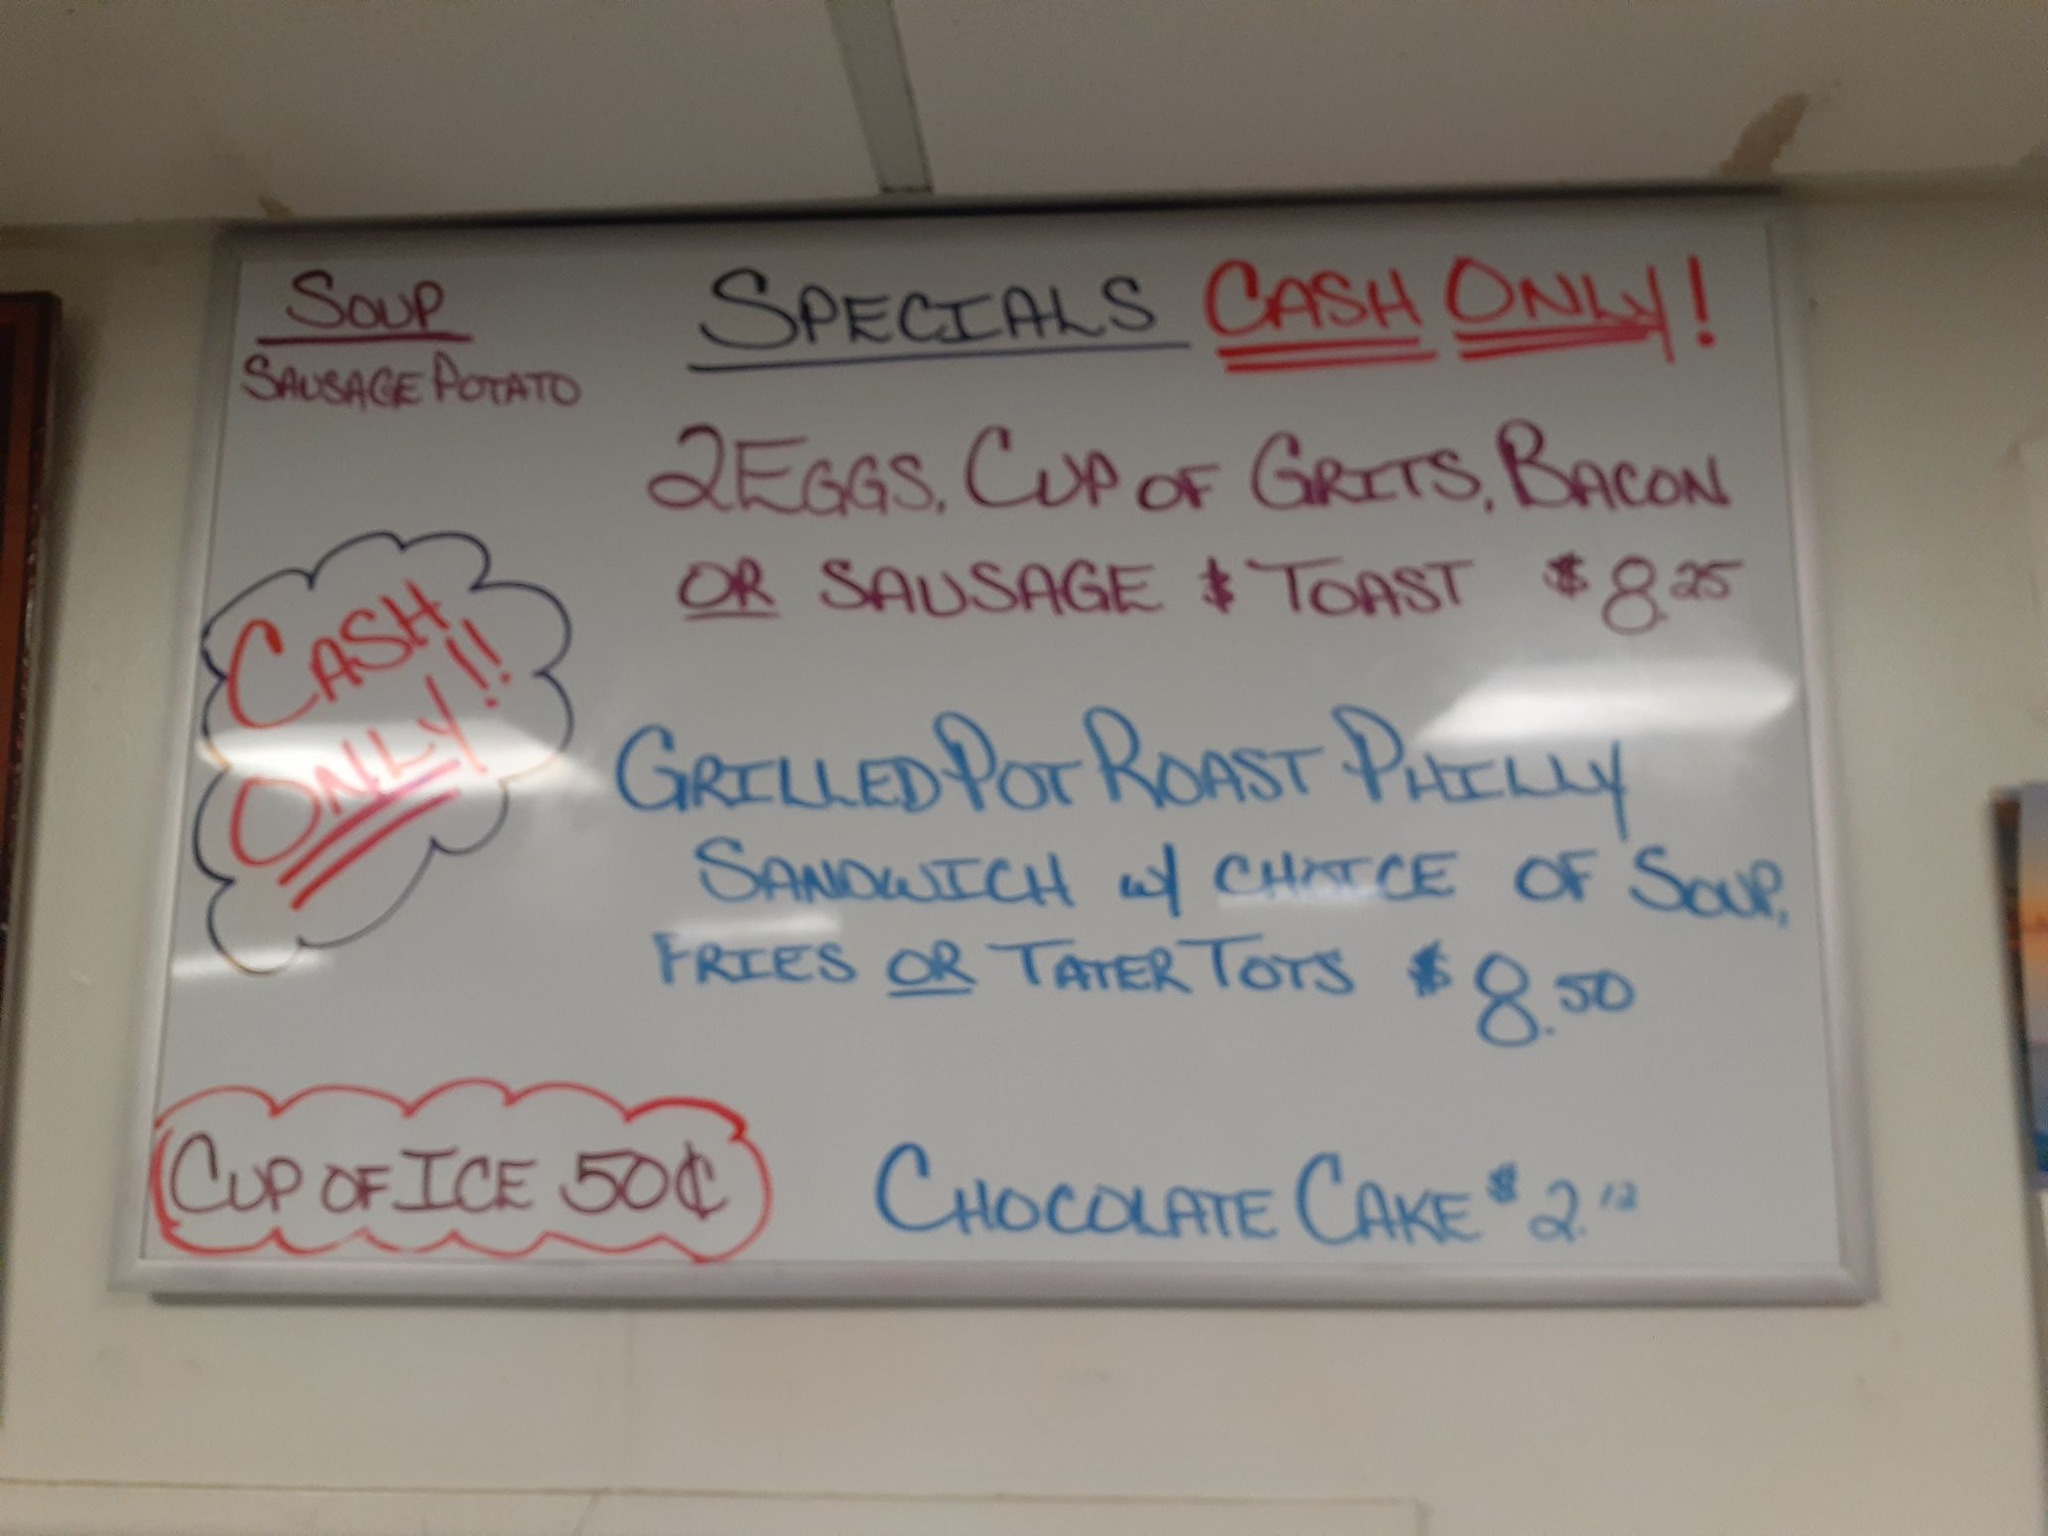 SOUP
SAUSAGE POTATO
SPECIALS CASH ONLY!
2 EGGS, CUP OF GRITS, BACON
OR SAUSAGE & TOAST $8.25
CASH
ONLY!!
GRILLED POT ROAST PHILLY
SANDWICH w/ CHOICE OF SOUP,
FRIES OR TATER TOTS $8.50
CUP OF ICE 50¢
CHOCOLATE CAKE $2.12